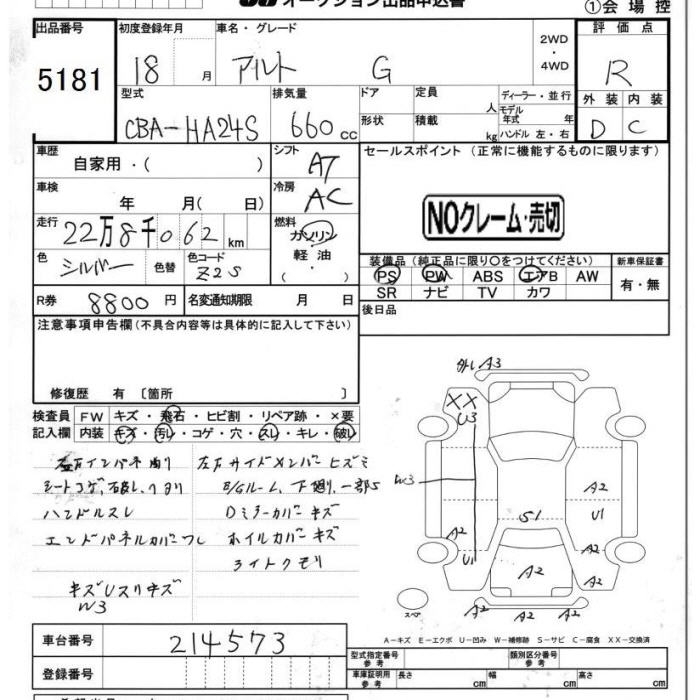 オークション出品申込書
①会場控
出品番号 初度登録年月 車名・グレード 2WD・4WD 評価点
5181 18 月 アルト G R
型式 排気量 ドア 定員 人 ディーラー・並行 外装 内装
CBA-HA24S 660 cc 形状 積載 kg モデル年式 年 ハンドル 左・右 D C
車歴 自家用・( ) シフト AT セールスポイント (正常に機能するものに限ります)
車検 年 月( 日) 冷房 AC
NOクレーム・売切
走行 22万8千062 km 燃料 ガソリン・軽油・( )
色 シルバー 色替 色コード Z2S
装備品(純正品に限り○をつけてください) 新車保証書
PS PW ABS エアB AW 有・無
SR ナビ TV カワ
R券 8800 円 名変通知期限 月 日 後日品
注意事項申告欄(不具合内容等は具体的に記入して下さい)
修復歴 有 〔箇所 〕
検査員記入欄 FW キズ・飛石・ヒビ割・リペア跡・×要
内装 キズ・汚レ・コゲ・穴・スレ・キレ・破レ
左サイドメンバーヒズミ
シートコゲ、破レ、
E/Gルーム、下廻、一部S
ハンドルスレ Dミラーカバーキズ
エンドパネルカバー ホイルカバーキズ
ライトクモリ
W3
外し A3
XX
U3
W3
A2
U1
S1
A2
U1
A2
A2
A2
A2
A2
スペア
A-キズ E-エクボ U-凹み W-補修跡 S-サビ C-腐食 XX-交換済
車台番号 214573
型式指定番号 参考 類別区分番号 参考
登録番号
車庫証明用 参考 長さ cm 幅 cm 高さ cm